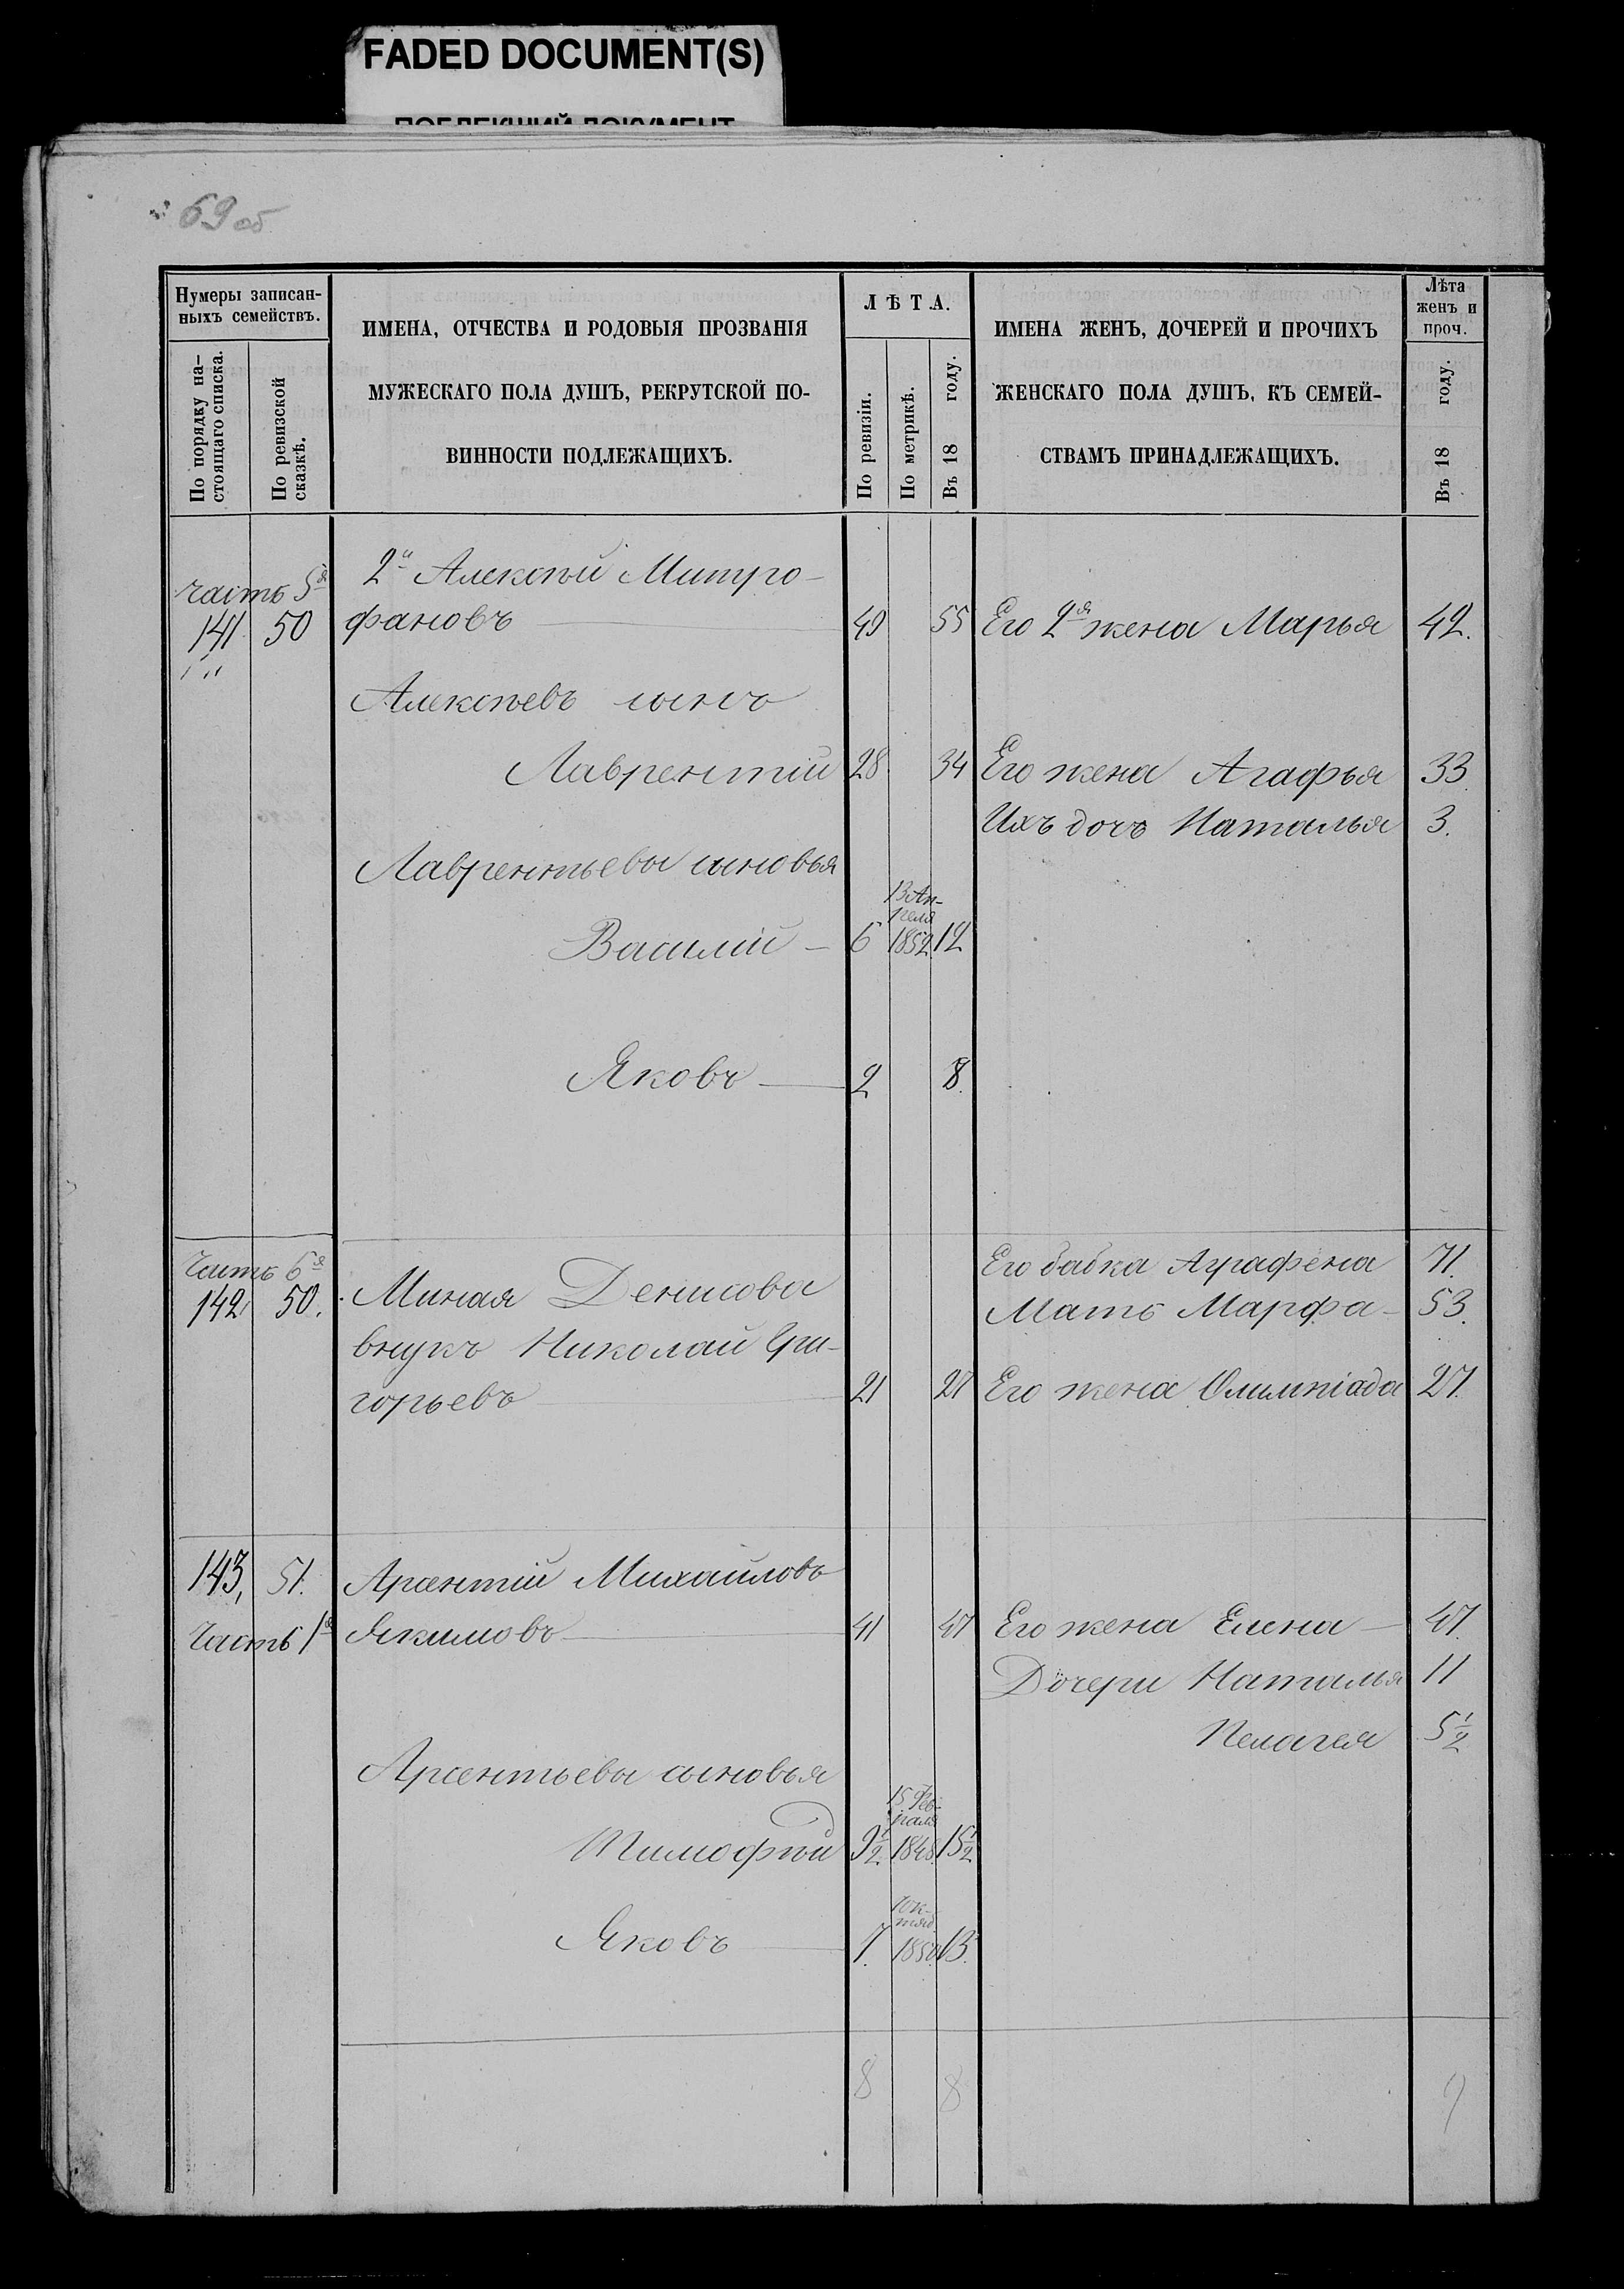 FADED DOCUMENT(S)
ПОБЛЕКШИЙ ДОКУМЕНТ
69 об
Нумеры записан-
ныхъ семействъ.
По порядку на-
стоящаго списка.
По ревизской
сказкѣ.
ИМЕНА, ОТЧЕСТВА И РОДОВЫЯ ПРОЗВАНІЯ
МУЖЕСКАГО ПОЛА ДУШЪ, РЕКРУТСКОЙ ПО-
ВИННОСТИ ПОДЛЕЖАЩИХЪ.
ЛѢТА.
По ревизіи.
По метрикѣ.
Въ 18 году.
ИМЕНА ЖЕНЪ, ДОЧЕРЕЙ И ПРОЧИХЪ
ЖЕНСКАГО ПОЛА ДУШЪ, КЪ СЕМЕЙ-
СТВАМЪ ПРИНАДЛЕЖАЩИХЪ.
Лѣта
женъ и
проч.
Въ 18 году.
часть 5я 2й Алексѣй Митро-
141 50 фановъ 49 55 Его 2я жена Марья 42.
Алексѣевъ сынъ
Лаврентій 28 34 Его жена Агафья 33
Ихъ дочь Наталья 3.
Лаврентьевы сыновья
13 Ап-
реля
Василій - 6 1852 12
Яковъ 2 8.
Часть 6я Его бабка Аграфена 71.
142 50. Миная Денисова Мать Марфа - 53.
внукъ Николай Гри-
горьевъ 21 27 Его жена Олимпіада 27.
143, 51. Арсентій Михайловъ
Часть 1я Якимовъ 41 47 Его жена Елена 47.
Дочери Наталья 11
Пелагея 5 1/2
Арсентьевы сыновья
15 Фев-
раля
Тимофѣй 9 1/2 1848 15 1/2
1 Ок-
тяб
Яковъ 7. 1850 13.
8 8 9